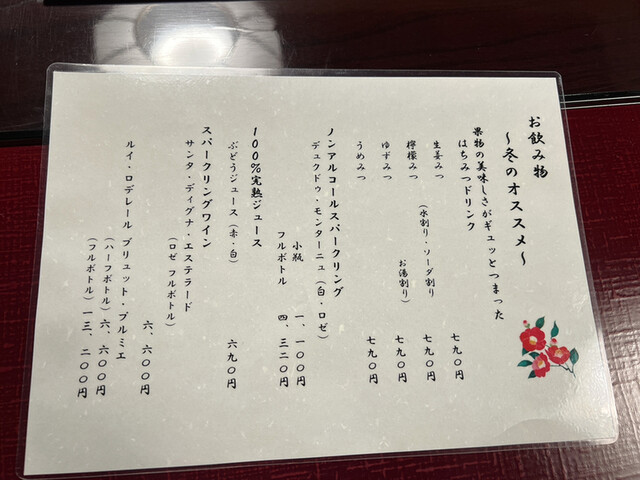 お飲み物
～冬のオススメ～
果物の美味しさがギュッとつまった
はちみつドリンク
生姜みつ 七九〇円
檸檬みつ 七九〇円
ゆずみつ 七九〇円
うめみつ 七九〇円
（水割り・ソーダ割り
お湯割り）
ノンアルコールスパークリング
デュクドゥ・モンターニュ（白・ロゼ）
小瓶 一、一〇〇円
フルボトル 四、三二〇円
１００％完熟ジュース
ぶどうジュース（赤・白） 六九〇円
スパークリングワイン
サンタ・ディグナ・エステラード
（ロゼ フルボトル） 六、六〇〇円
ルイ・ロデレール ブリュット・プルミエ
（ハーフボトル） 六、六〇〇円
（フルボトル） 一三、二〇〇円